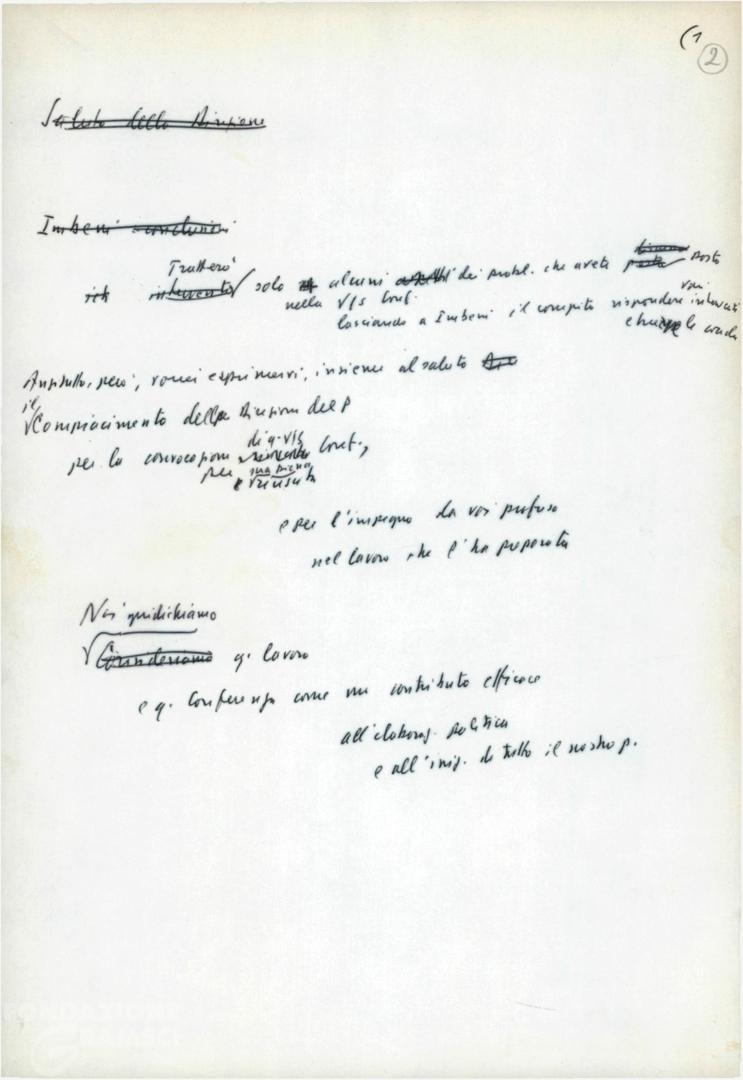 (1
2
Saluto della Direzione
Imbeni conclusioni
Tratterò
intervento solo alcuni dei probl. che avete posto
nella V/S Conf.
lasciando a Imbeni il compito rispondere vari intervenuti
Anzitutto, però, vorrei esprimervi, insieme al saluto
il
Compiacimento della Direzione del P
per la convocazione di q. V/S Conf.,
per sua piena
e riuscita
e per l'impegno da voi profuso
nel lavoro che l'ha preparata
Noi giudichiamo
Consideriamo q. lavoro
e q. Conferenza come un contributo efficace
all'elaboraz. politica
e all'iniz. di tutto il nostro p.
FONDAZIONE
GRAMSCI